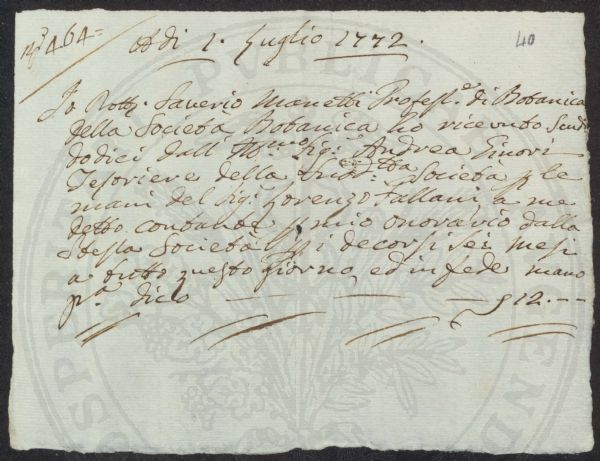 N.° 464=
Adi 1. Luglio 1772.
40
Io Dott.r Saverio Manetti Profess.e di Botanica
della Società Botanica ho ricevuto Scudi
dodici dall' Ill.mo Sig.r Andrea Ginori
Tesoriere della Sud.etta Società p le
mani del Sig.r Lorenzo Fallani, a me
detto contanti p mio onorario dalla
stessa Società p i decorsi sei mesi
a tutto questo giorno, ed in fede mano
pp.a dico — — — — 12.--
PUBLIC
PROSPERITATI
AUGENDAE